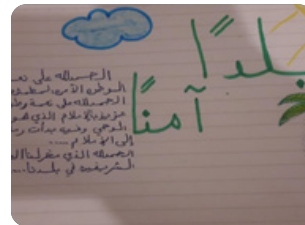 بلدًا
آمنًا
الحمدلله على نعمة
الوطن الآمن
الحمدلله على نعمة وطن
عزيز بالإسلام الذي هو
الوحي ومن بدأت
إلى الإسلام ....
الحمدلله الذي
الشريفين في بلدنا...